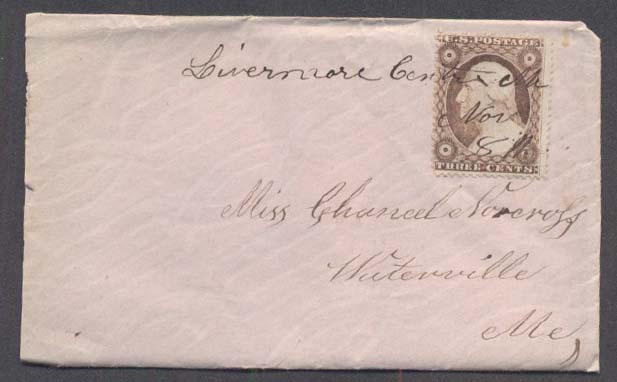 U.S. POSTAGE
Livermore Centre Me
Nov
8th
THREE CENTS
Miss Chancel Norcross
Waterville
Me,